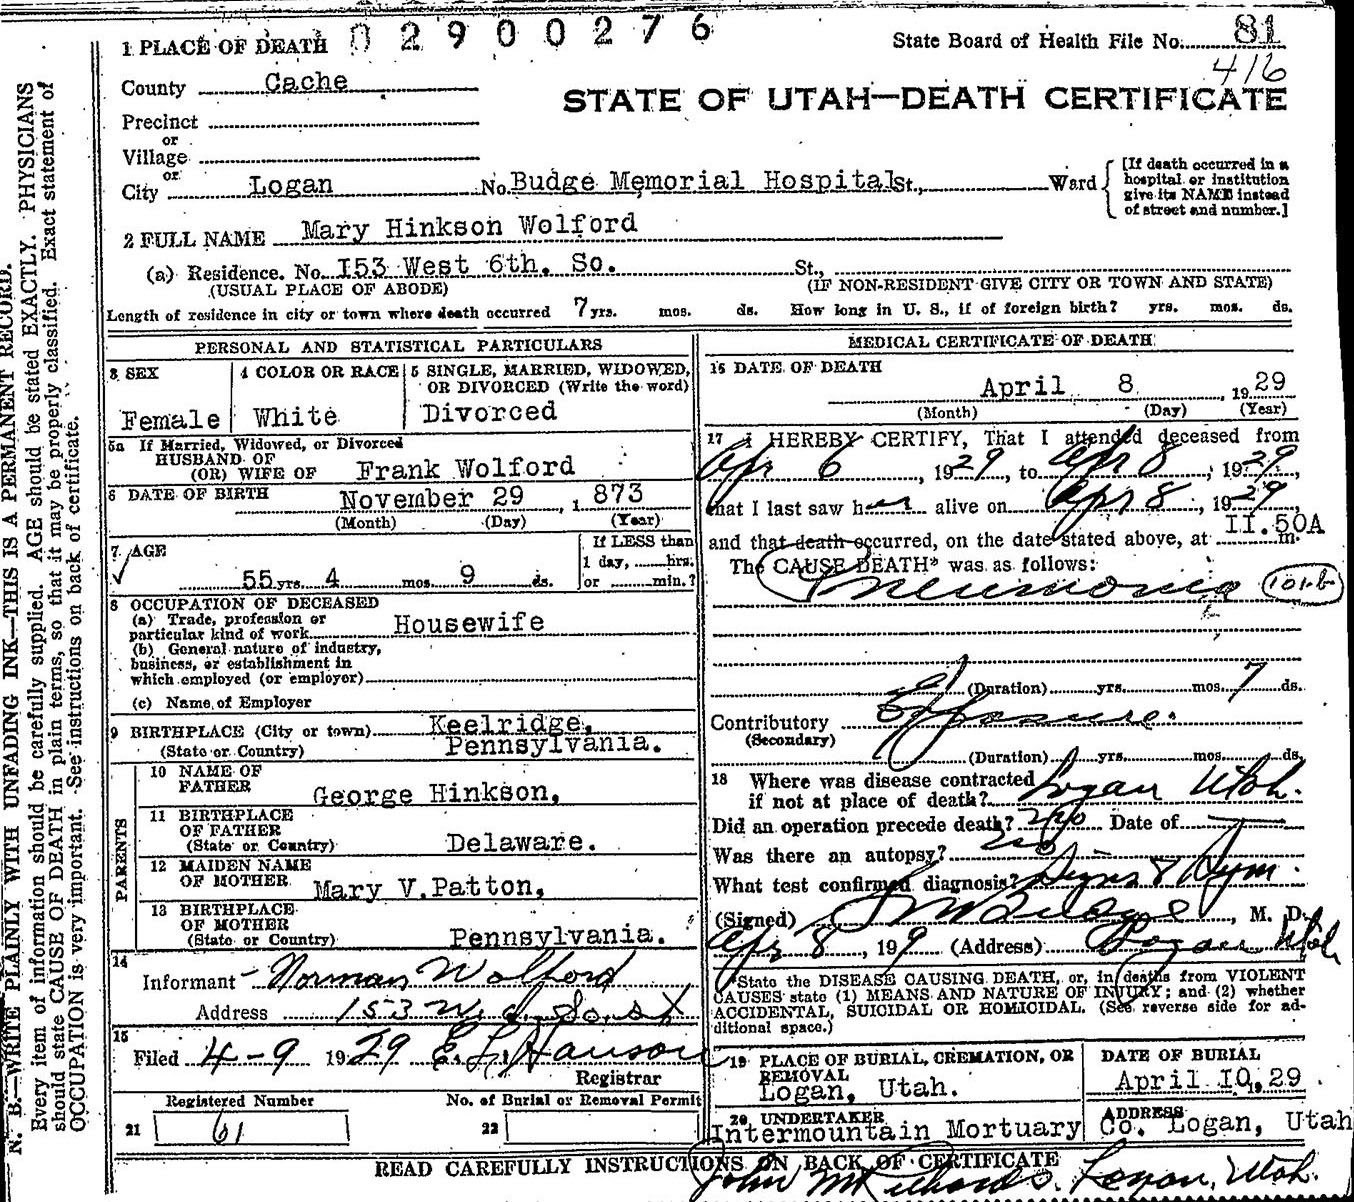 0 2 9 0 0 2 7 6
State Board of Health File No. 81
416
1 PLACE OF DEATH
County Cache
STATE OF UTAH—DEATH CERTIFICATE
Precinct
or
Village
or
City Logan No. Budge Memorial Hospital St., Ward
[If death occurred in a hospital or institution give its NAME instead of street and number.]
2 FULL NAME Mary Hinkson Wolford
(a) Residence. No. I53 West 6th. So. St.,
(USUAL PLACE OF ABODE) (IF NON-RESIDENT GIVE CITY OR TOWN AND STATE)
Length of residence in city or town where death occurred 7 yrs. mos. ds. How long in U. S., if of foreign birth? yrs. mos. ds.
PERSONAL AND STATISTICAL PARTICULARS
3 SEX
Female
4 COLOR OR RACE
White
5 SINGLE, MARRIED, WIDOWED,
OR DIVORCED (Write the word)
Divorced
5a If Married, Widowed, or Divorced
HUSBAND OF
(OR) WIFE OF Frank Wolford
6 DATE OF BIRTH November 29, 1 873
(Month) (Day) (Year)
7 AGE
55 yrs. 4 mos. 9 ds.
If LESS than
1 day, hrs.
or min.?
8 OCCUPATION OF DECEASED
(a) Trade, profession or
particular kind of work Housewife
(b) General nature of industry,
business, or establishment in
which employed (or employer)
(c) Name of Employer
9 BIRTHPLACE (City or town) Keelridge,
(State or Country) Pennsylvania.
PARENTS
10 NAME OF
FATHER George Hinkson,
11 BIRTHPLACE
OF FATHER
(State or Country) Delaware.
12 MAIDEN NAME
OF MOTHER Mary V.Patton,
13 BIRTHPLACE
OF MOTHER
(State or Country) Pennsylvania.
14
Informant Norman Wolford
Address 153 W. So. st
15
Filed 4-9 1929 E. L. Hanson
Registrar
Registered Number
21 61
No. of Burial or Removal Permit
22
MEDICAL CERTIFICATE OF DEATH
16 DATE OF DEATH
April 8 , 1929
(Month) (Day) (Year)
17 I HEREBY CERTIFY, That I attended deceased from
Apr 6, 1929, to Apr 8, 1929,
that I last saw her alive on Apr 8, 1929,
and that death occurred, on the date stated above, at II.50A m.
The CAUSE DEATH* was as follows:
Pneumonia 101-b
(Duration) yrs. mos. 7 ds.
Contributory Exposure.
(Secondary)
(Duration) yrs. mos. ds.
18 Where was disease contracted
if not at place of death? Logan Utah.
Did an operation precede death? no Date of
Was there an autopsy? no
What test confirmed diagnosis? Signs & Sym.
(Signed) Budge, M. D.
Apr 8, 19 9 (Address) Logan Utah
*State the DISEASE CAUSING DEATH, or, in deaths from VIOLENT
CAUSES state (1) MEANS AND NATURE OF INJURY; and (2) whether
ACCIDENTAL, SUICIDAL OR HOMICIDAL. (See reverse side for ad-
ditional space.)
19 PLACE OF BURIAL, CREMATION, OR
REMOVAL
Logan, Utah.
DATE OF BURIAL
April 10, 29
20 UNDERTAKER
Intermountain Mortuary
ADDRESS
Co. Logan, Utah
READ CAREFULLY INSTRUCTIONS ON BACK OF CERTIFICATE
John M Richards. Logan, Utah.
N. B.—WRITE PLAINLY WITH UNFADING INK—THIS IS A PERMANENT RECORD.
Every item of information should be carefully supplied. AGE should be stated EXACTLY. PHYSICIANS
should state CAUSE OF DEATH in plain terms, so that it may be properly classified. Exact statement of
OCCUPATION is very important. See instructions on back of certificate.